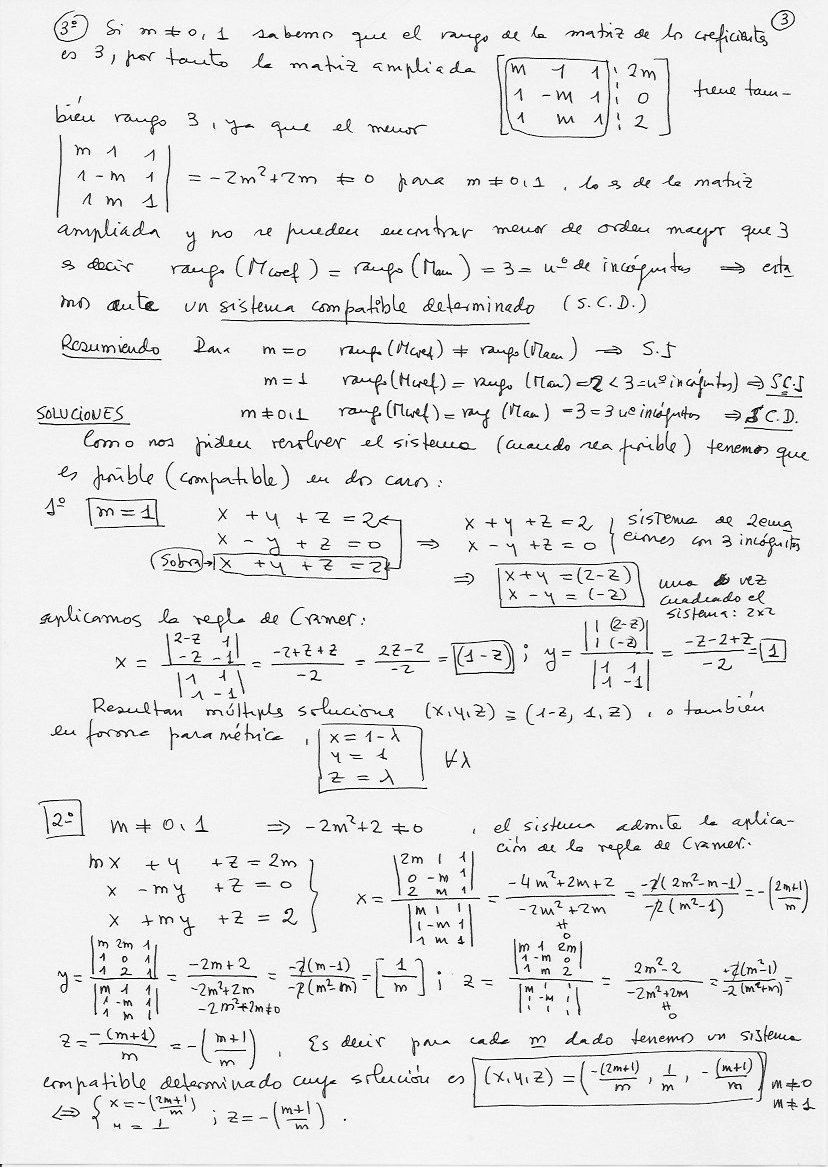 3
3º Si m ≠ 0, 1 sabemos que el rango de la matriz de los coeficientes
es 3, por tanto la matriz ampliada [m 1 1 ⋮ 2m
1 -m 1 ⋮ 0
1 m 1 ⋮ 2] tiene tam-
bién rango 3, ya que el menor
|m 1 1
1 -m 1
1 m 1| = -2m²+2m ≠ 0 para m ≠ 0,1, lo es de la matriz
ampliada y no se pueden encontrar menor de orden mayor que 3
es decir rango (Mcoef) = rango (Mam) = 3 = nº de incógnitas ⇒ esta
mos ante un sistema compatible determinado (S.C.D.)
Resumiendo Para m=0 rango(Mcoef) ≠ rango(Mam) ⇒ S.I
m=1 rango(Mcoef) = rango (Mam) = 2 < 3 = nº incógnitas) ⇒ S.C.I
SOLUCIONES m≠0,1 rango(Mcoef) = rang (Mam) = 3 = 3 nº incógnitas ⇒ S.C.D.
Como nos piden resolver el sistema (cuando sea posible) tenemos que
es posible (compatible) en dos casos:
1º m=1 x + y + z = 2 ⇒ x + y + z = 2 sistema de 2 ecua
x - y + z = 0 x - y + z = 0 ciones con 3 incógnitas
Sobra → x + y + z = 2
⇒ x + y = (2-z) una vez
x - y = (-z) cuadrado el
sistema: 2x2
aplicamos la regla de Cramer:
x = |2-z 1
-z -1| / |1 1
1 -1| = (-2+z+z)/-2 = (2z-2)/-2 = (1-z) ; y = |1 (2-z)
1 (-z)| / |1 1
1 -1| = (-z-2+z)/-2 = 1
Resultan múltiples soluciones (x,y,z) ≡ (1-z, 1, z), o también
en forma paramétrica, x = 1-λ
y = 1 ∀λ
z = λ
2º m ≠ 0,1 ⇒ -2m²+2 ≠ 0, el sistema admite la aplica-
ción de la regla de Cramer:
mx + y + z = 2m
x - my + z = 0
x + my + z = 2
x = |2m 1 1
0 -m 1
2 m 1| / |m 1 1
1 -m 1
1 m 1| = (-4m²+2m+2)/(-2m²+2m ≠ 0) = -2(2m²-m-1)/-2(m²-1) = -(2m+1/m)
y = |m 2m 1
1 0 1
1 2 1| / |m 1 1
1 -m 1
1 m 1| = (-2m+2)/(-2m²+2m) = -2(m-1)/-2(m²-m) = [1/m] ;
-2m²+2m≠0
z = |m 1 2m
1 -m 0
1 m 2| / |m 1 1
1 -m 1
1 1 1| = (2m²-2)/(-2m²+2m ≠ 0) = -2(m²-1)/-2(m²+m) =
z = -(m+1)/m = -(m+1/m). Es decir para cada m dado tenemos un sistema
compatible determinado cuya solución es (x,y,z) = (-(2m+1)/m, 1/m, -(m+1)/m) m≠0
m≠1
⇔ { x = -(2m+1/m)
y = 1 ; z = -(m+1/m).